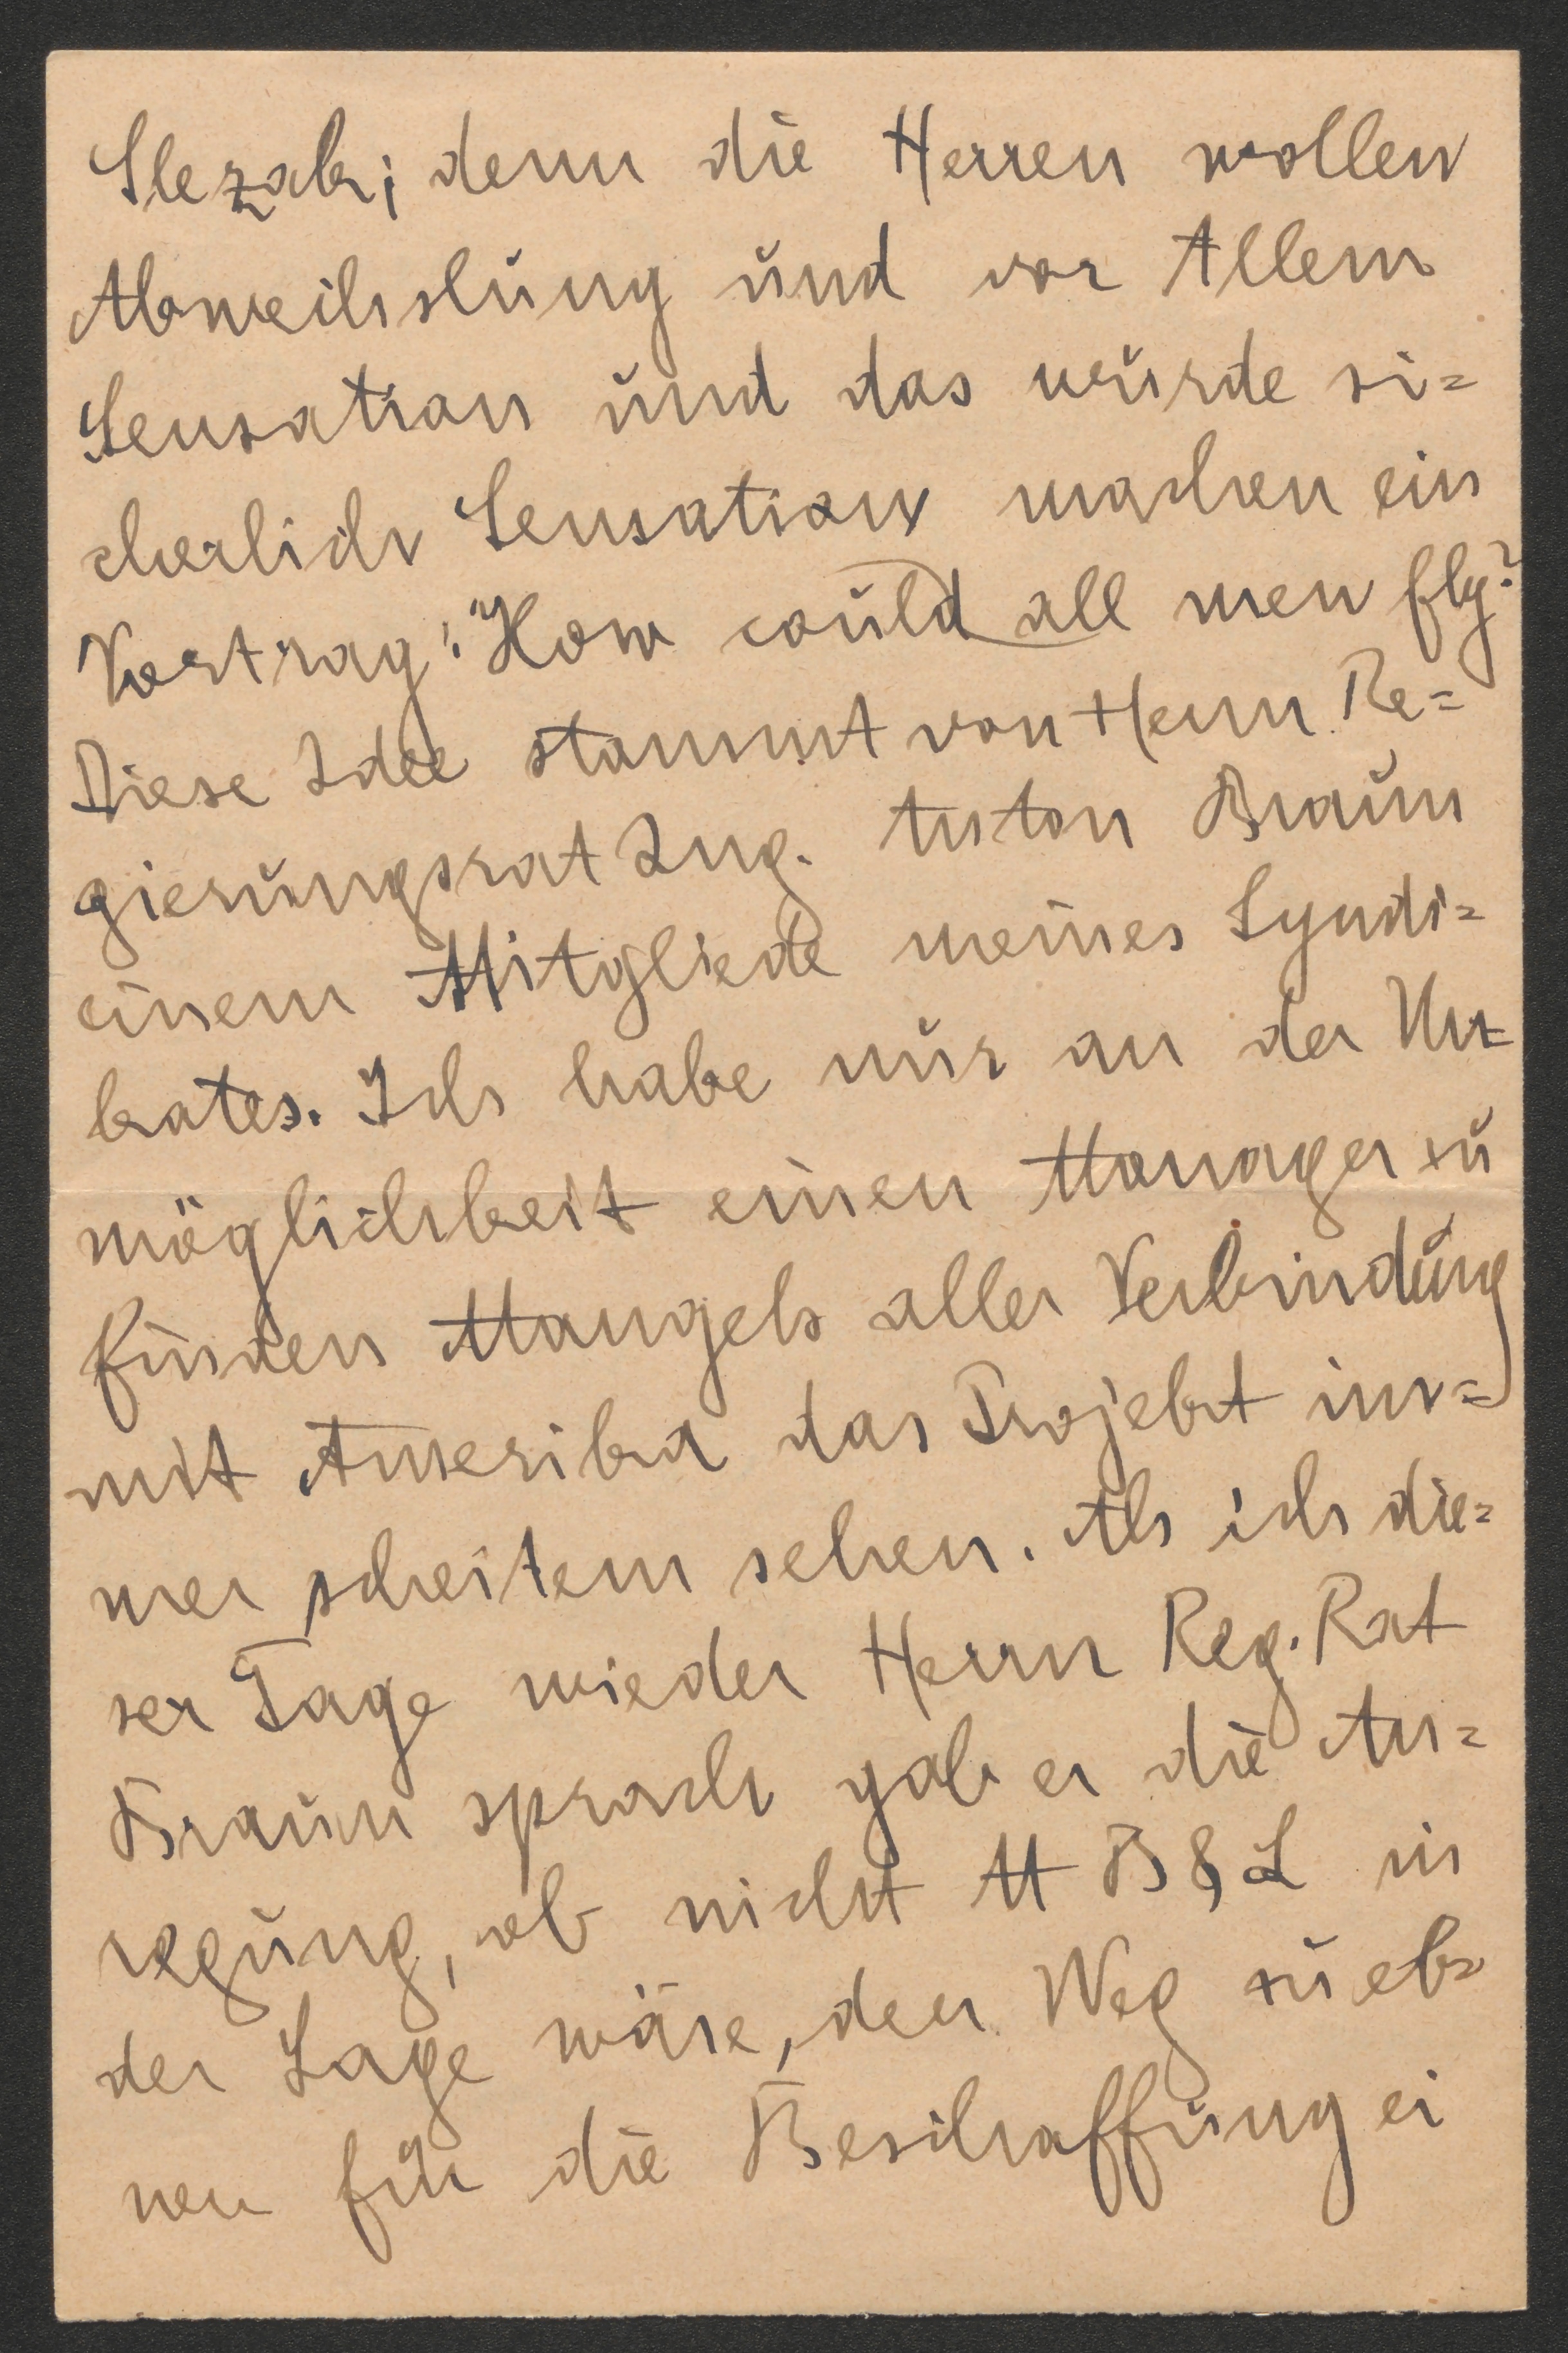 Slezak; denn die Herren wollen
Abwechslung und vor Allem
Sensation und das würde si=
cherlich Sensation machen ein
Vortrag: "How could all men fly?
Diese Idee stammt von Herrn Re=
gierungsrat Ing. Anton Braun
einem Mitgliede meines Syndi=
kates. Ich habe nur an der Un=
möglichkeit einen Manager zu
finden Mangels aller Verbindung
mit Amerika das Projekt im=
mer scheitern sehen. Als ich die=
ser Tage wieder Herrn Reg. Rat
Braun sprach gab er die An=
regung, ob nicht M B & L in
der Lage wäre, den Weg zu eb=
nen für die Beschaffung ei